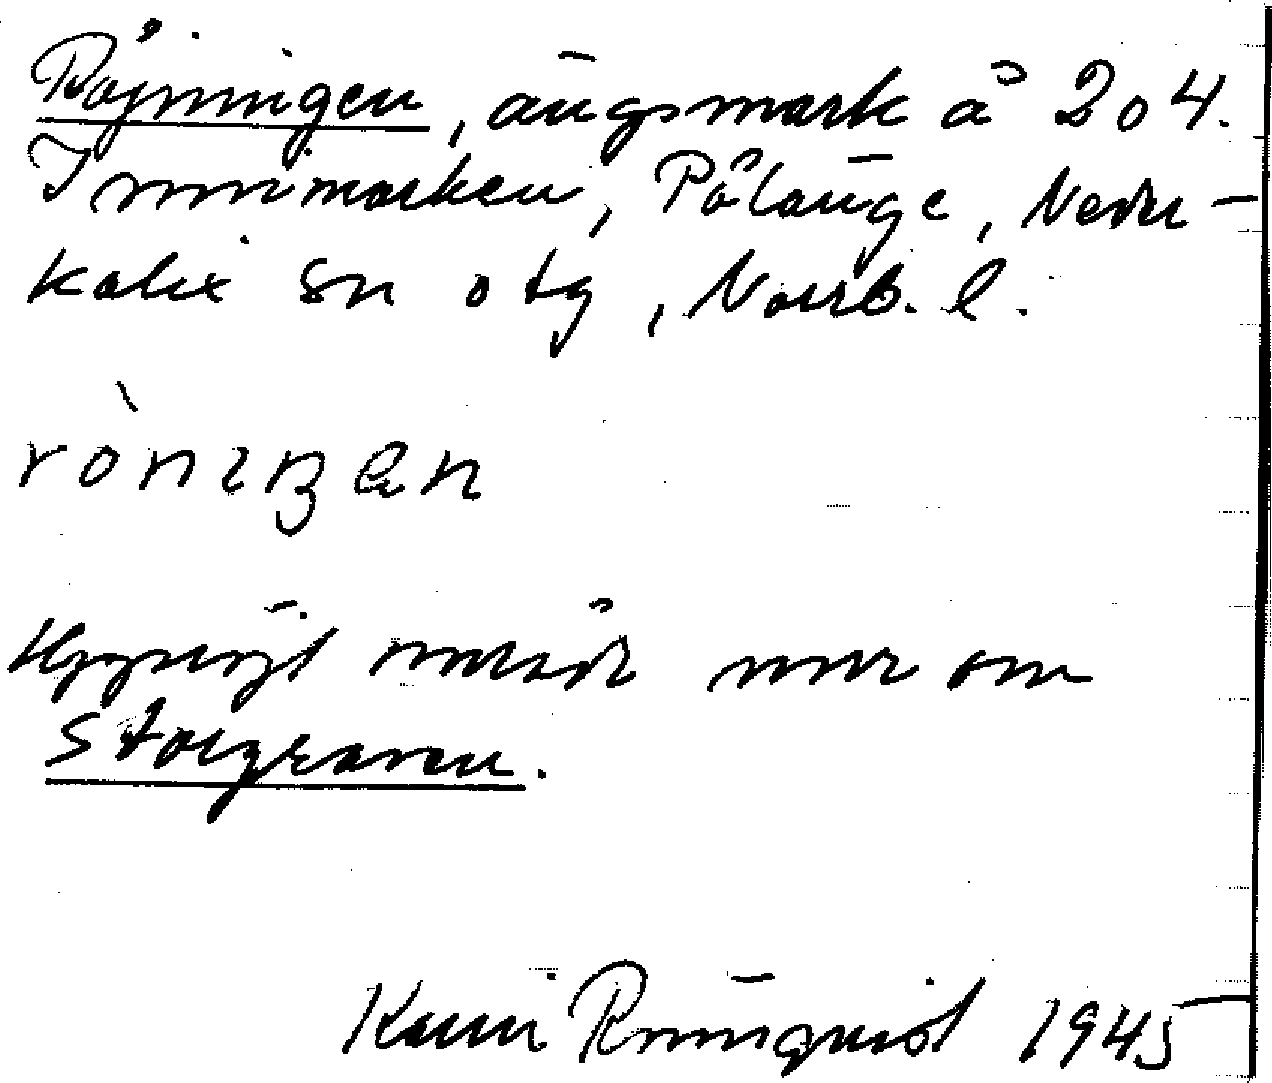 Röjningen, ängsmark å 204.
Innimarken, Pålänge, Neder-
kalix sn o tg, Norrb. l.
rònıŋen
Uppröjt norr om
Storgraven.
Karin Rönnquist 1945